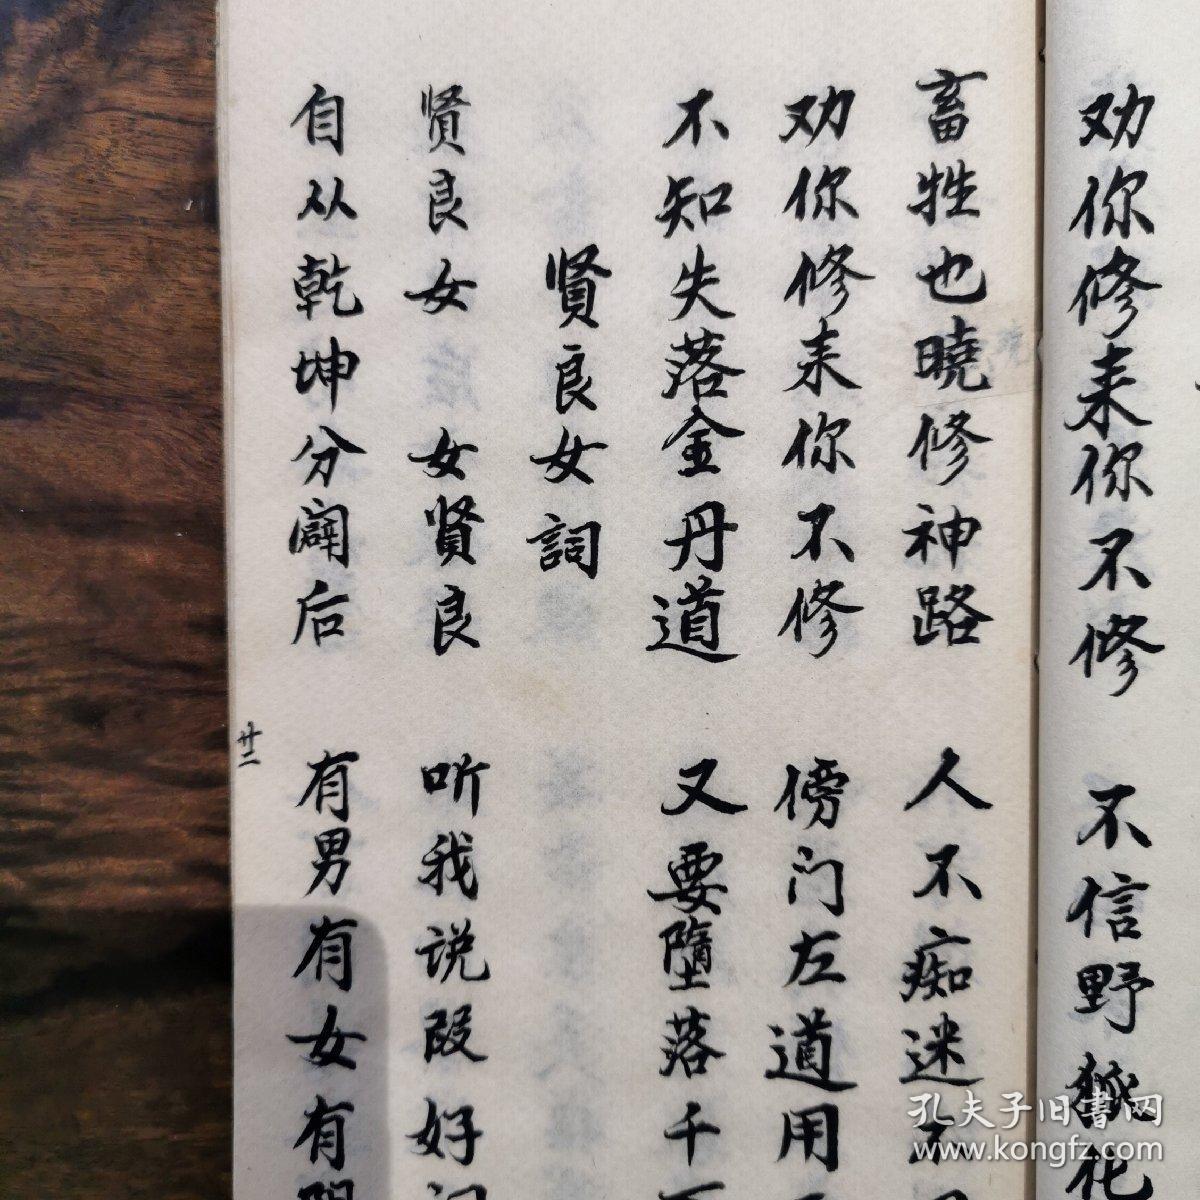 劝你修来你不修 不信野
畜牲也曉修神路 人不痴迷
劝你修来你不修 傍门左道用
不知失落金丹道 又要墮落千
賢良女詞
贤良女 女贤良 听我说段好
自从乾坤分闢后 有男有女有
廿二
孔夫子旧书网
www.kongfz.com